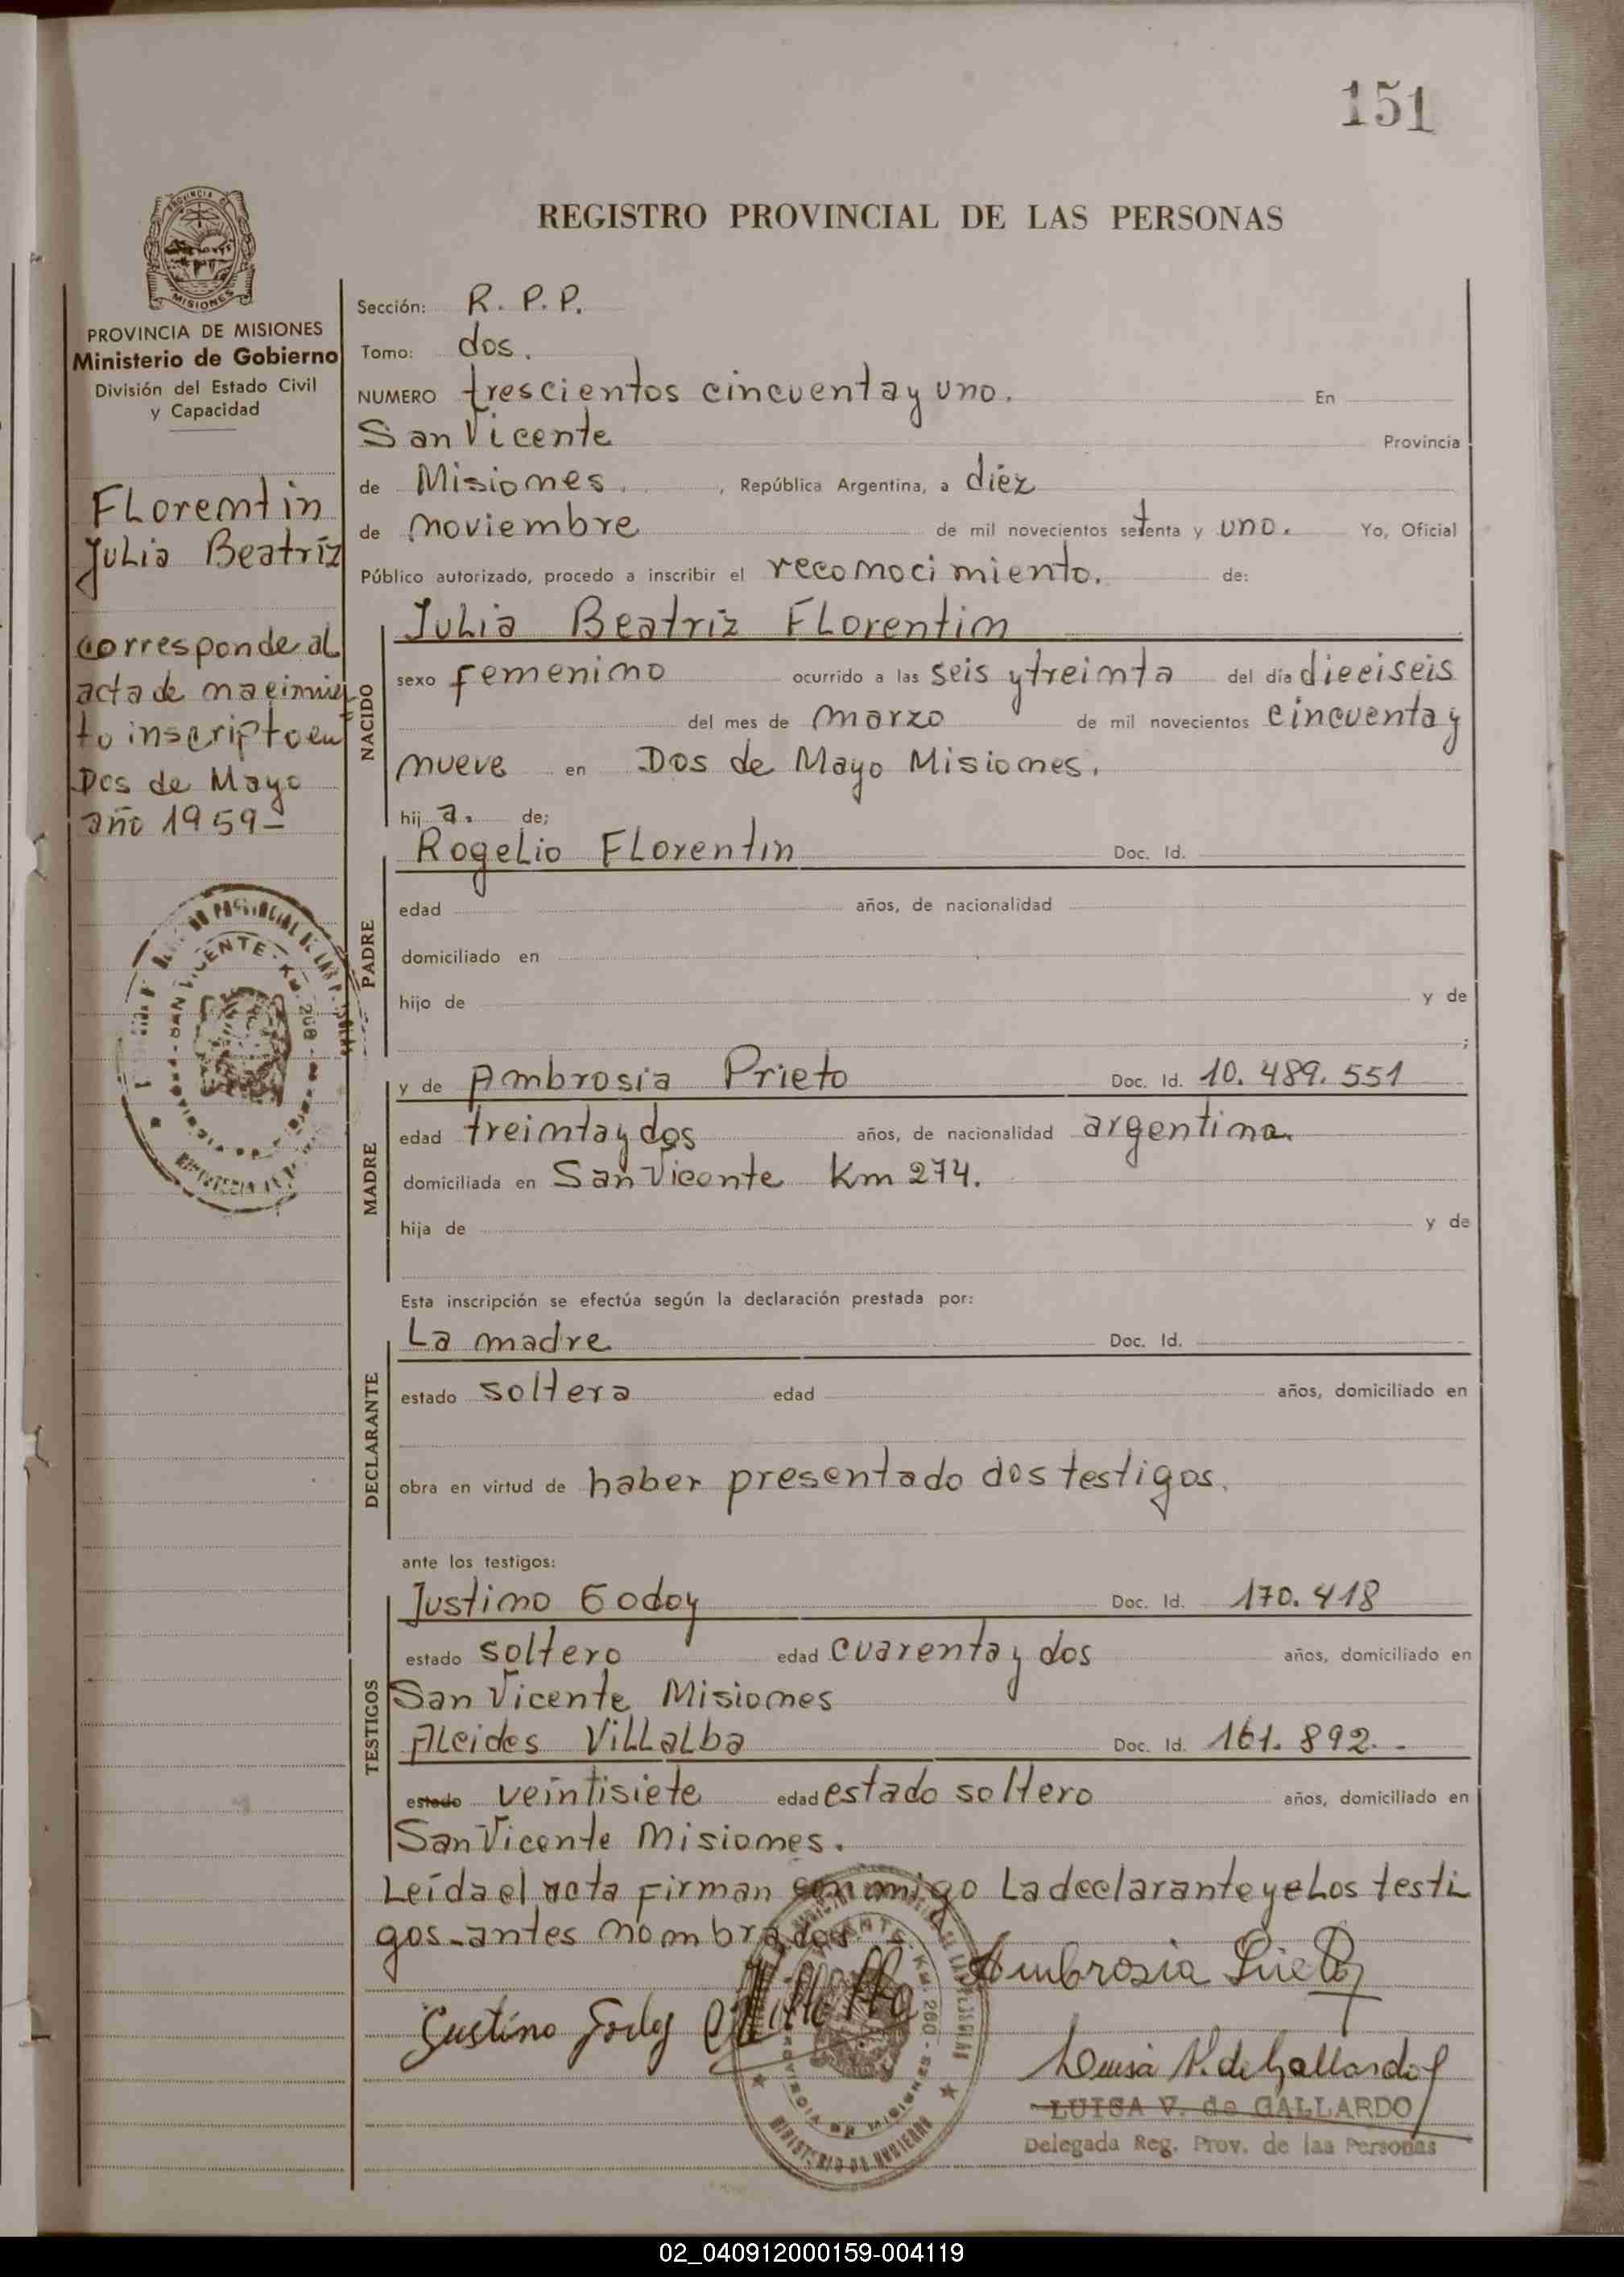 151
REGISTRO PROVINCIAL DE LAS PERSONAS
PROVINCIA DE MISIONES
Ministerio de Gobierno
División del Estado Civil
y Capacidad
Florentin
Julia Beatríz
corresponde al
acta de nacimien
to inscripto en
Dos de Mayo
año 1959-
Sección: R. P. P.
Tomo: dos.
NUMERO trescientos cincuenta y uno. En
San Vicente Provincia
de Misiones. , República Argentina, a diéz
de noviembre de mil novecientos setenta y uno. Yo, Oficial
Público autorizado, procedo a inscribir el reconocimiento. de:
NACIDO
Julia Beatriz Florentin
sexo femenino ocurrido a las seis y treinta del día dieciseis
del mes de marzo de mil novecientos cincuenta y
nueve en Dos de Mayo Misiones.
hij a. de;
PADRE
Rogelio Florentin Doc. Id.
edad años, de nacionalidad
domiciliado en
hijo de y de
;
MADRE
y de Ambrosia Prieto Doc. Id. 10.489.551
edad treinta y dos años, de nacionalidad argentina.
domiciliada en San Vicente Km 274.
hija de y de
Esta inscripción se efectúa según la declaración prestada por:
DECLARANTE
La madre Doc. Id.
estado soltera edad años, domiciliado en
obra en virtud de haber presentado dos testigos.
ante los testigos:
TESTIGOS
Justino Godoy Doc. Id. 170.418
estado soltero edad cuarenta y dos años, domiciliado en
San Vicente Misiones
Alcides Villalba Doc. Id. 161.892.-
estado veintisiete edad estado soltero años, domiciliado en
San Vicente Misiones.
Leída el acta firman conmigo La declarante y los testi
gos-antes nombrados
Ambrosia Prieto
Justino Godoy
Luisa V. de Gallardo
LUISA V. de GALLARDO
Delegada Reg. Prov. de las Personas
02_040912000159-004119